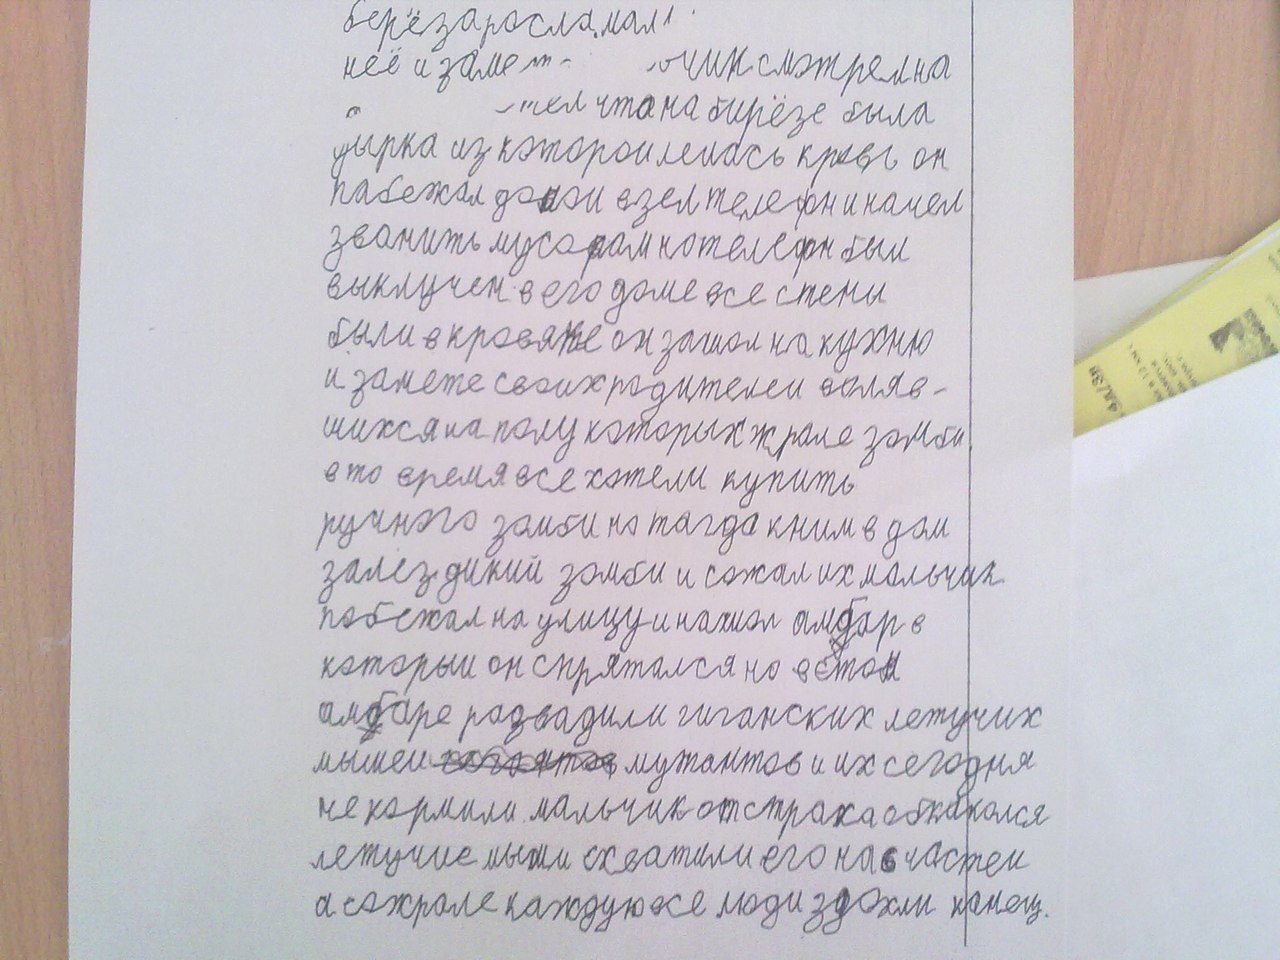 берёзаросла. мал
неё и замет очик смэтрел на
тел что на бирёзе была
дырка из которои лелась кровь он
пабежал домои взел телефн и начел
званить мусорам но телефн был
выклучен в его доме все стены
были в кровяне он зашол на кухню
и замете своих родителеи воляв-
шихся на полу которых жрале зомби
в то время все хотели купить
ручного зомби но тагда к ним в дом
залез дикий зомби и сожал их мальчик
побежал на улицу и нахшол амбар в
которыи он спрятался но в етом
амбаре развадили гиганских летучих
мышеи мутантов и их сегодня
не кормили. мальчик от страха обкакался
летучие мыши схватили его на 6 частеи
и сожрале каждую все люди здохли канец.